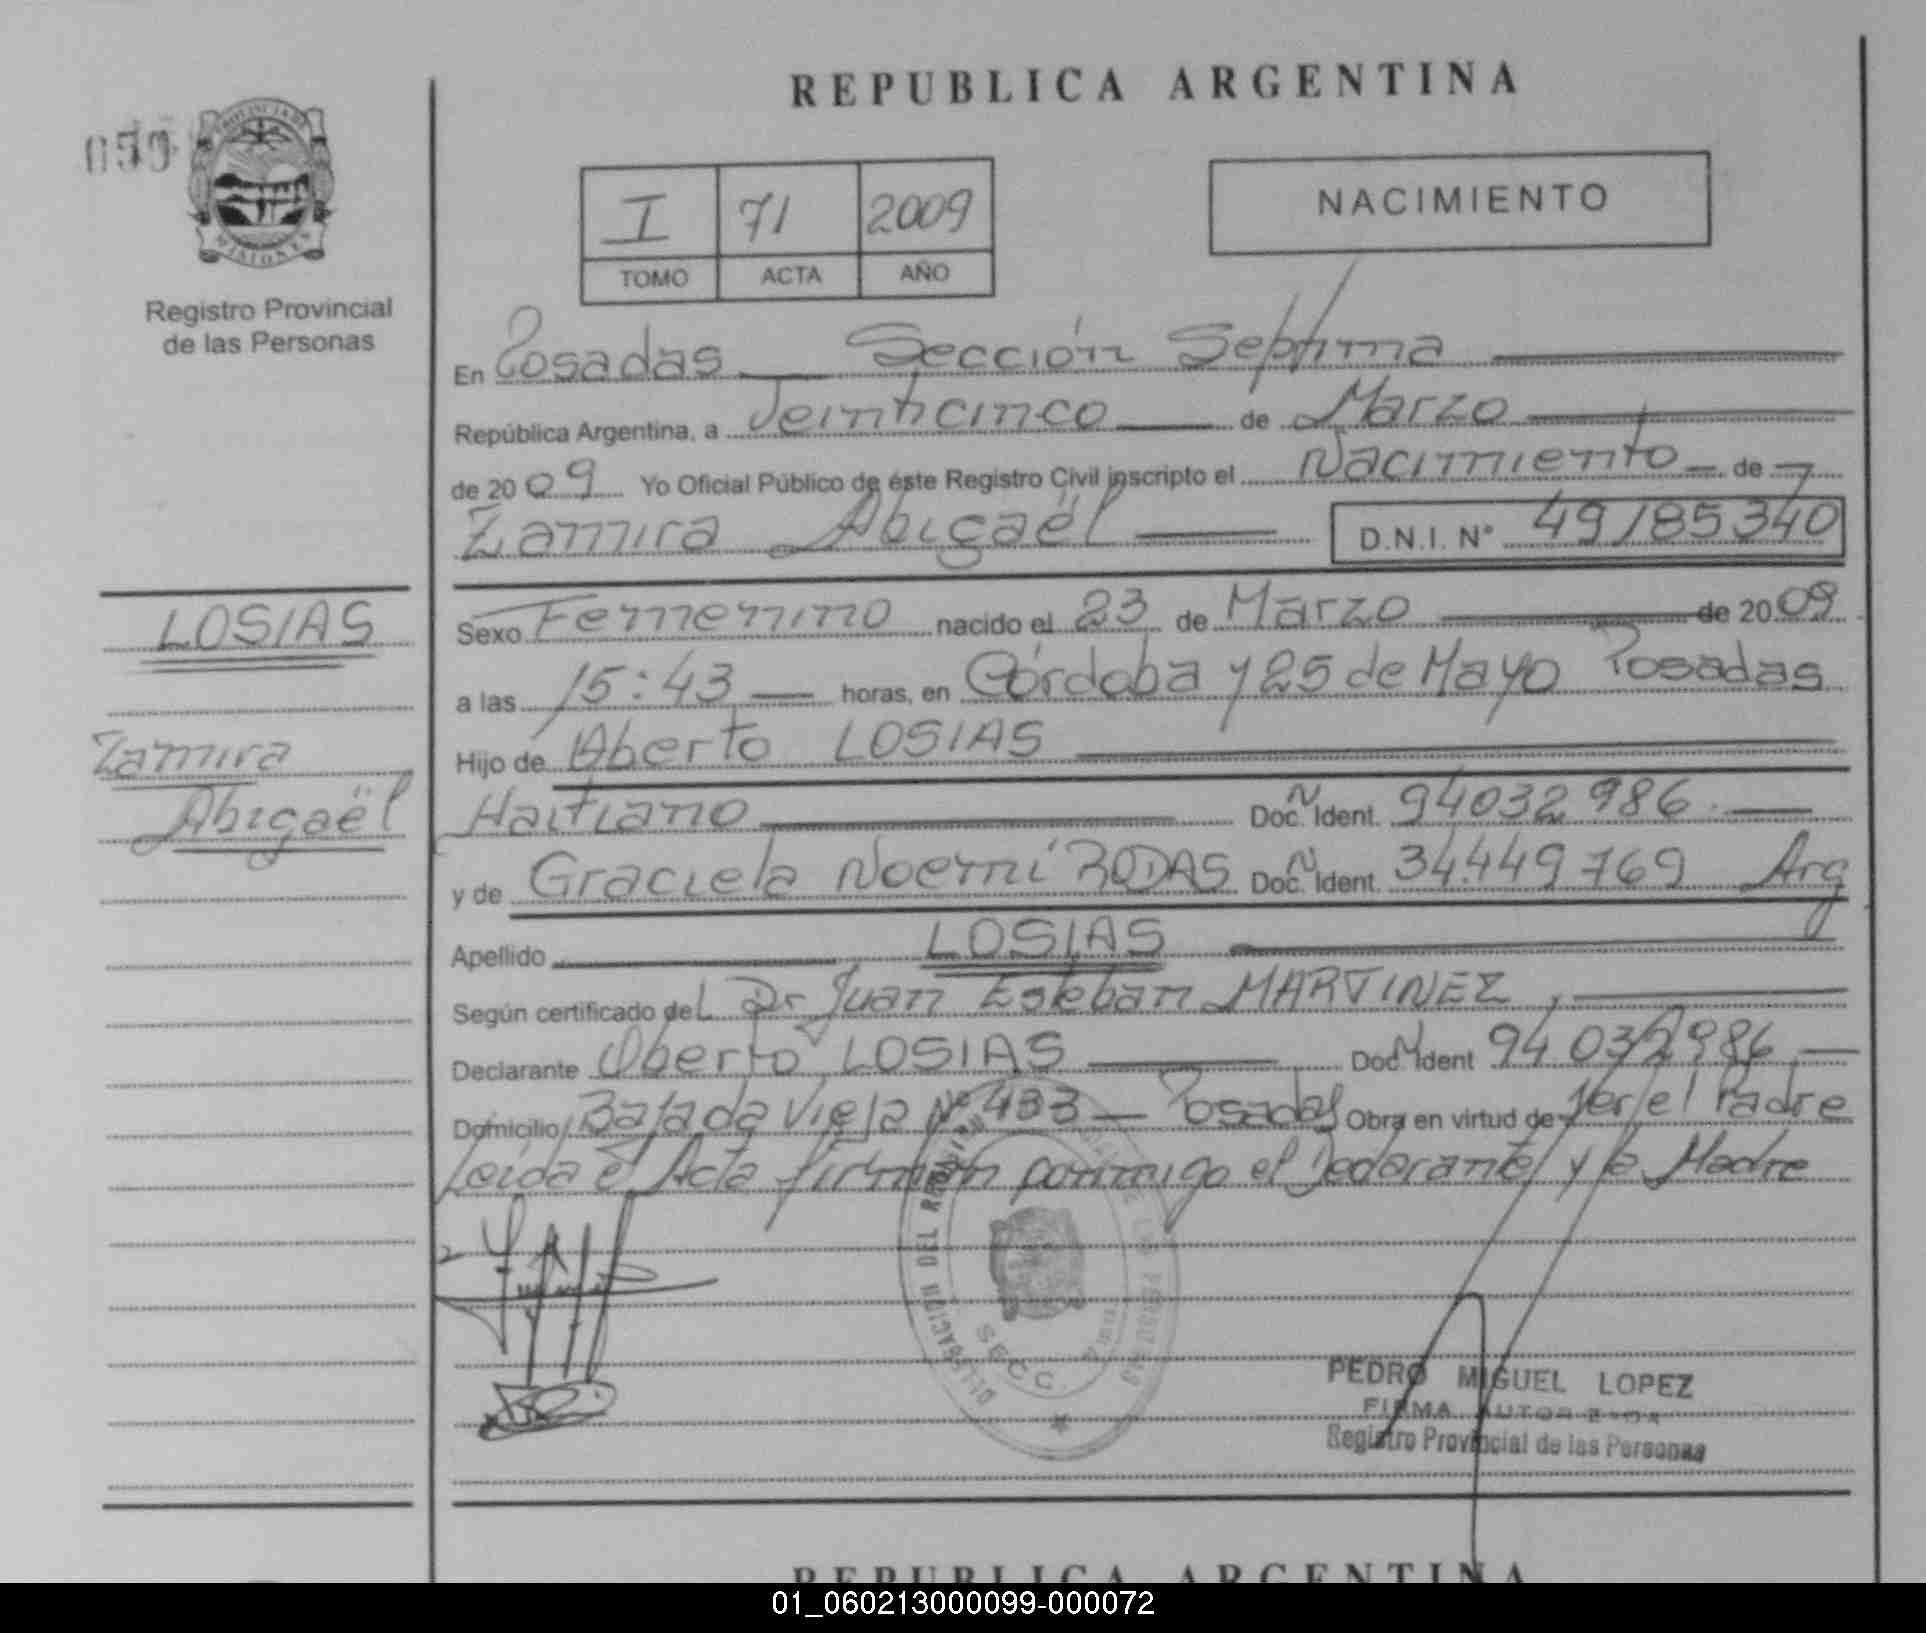 REPUBLICA ARGENTINA
059
PROVINCIA DE
MISIONES
Registro Provincial
de las Personas
I 71 2009
TOMO ACTA AÑO
NACIMIENTO
En Posadas Sección Septima
República Argentina, a Veinticinco de Marzo
de 2009 Yo Oficial Público de éste Registro Civil inscripto el Nacimiento de
Zamira Abigaël D.N.I. Nº 49185340
LOSIAS
Zamira
Abigaël
Sexo Femenino nacido el 23 de Marzo de 2009
a las 15:43 horas, en Córdoba y 25 de Mayo Posadas
Hijo de Oberto LOSIAS
Haitiano Doc. Ident. N 94032986
y de Graciela Noemí RODAS Doc. Ident. N 34.449769 Arg
Apellido LOSIAS
Según certificado del Dr Juan Esteban MARTINEZ,
Declarante Oberto LOSIAS Doc. N Ident 94 032986
Domicilio Bajada Vieja Nº 433 Posadas Obra en virtud de Ser el Padre
Leída el Acta firman conmigo el Declarante y la Madre
DELEGACION DEL REGISTRO PROVINCIAL DE LAS PERSONAS
SECC. 7
PEDRO MIGUEL LOPEZ
FIRMA AUTORIZADA
Registro Provincial de las Personas
REPUBLICA ARGENTINA
01_060213000099-000072